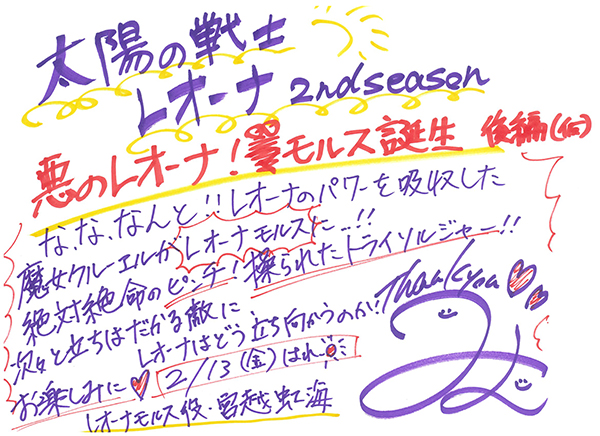 太陽の戦士
レオーナ 2nd season
悪のレオーナ！モルス誕生 後編(仮)
な、な、なんと!!レオーナのパワーを吸収した
魔女クルーエルがレオーナモルスに…!!
絶対絶命のピンチ！操られたトライソルジャー!!
次々と立ちはだかる敵に
レオーナはどう立ち向かうのか!?
Thank you
お楽しみに♥ 2/13(金)はれ
レオーナモルス役・宮越虹海